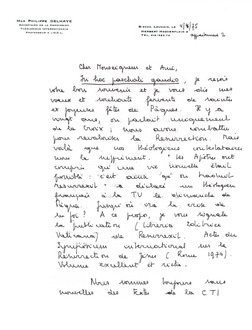 MGR PHILIPPE DELHAYE
SECRÉTAIRE DE LA COMMISSION
THÉOLOGIQUE INTERNATIONALE
PROFESSEUR À L'U.C.L.
Cher Monseigneur et Ami,
In hoc paschale gaudio, je reçois
votre bon souvenir et je vous dis mes
vœux et souhaits fervents de saintes
et joyeuses fêtes de Pâques. Il y a
vingt ans, on parlait uniquement
de la Croix ; nous avons combattu
pour revaloriser la Résurrection. Mais
voilà que nos théologiens contestataires
la suppriment. "Les Apôtres ont
compris qu'une vie nouvelle était
possible : c'est cela qu'on traduisit
Resurrexit" a déclaré un théologien
français à la TV le dimanche de
Pâques. Jusqu'où ira la crise de
la foi ? A ce propos, je vous signale
la publication (Libreria Editrice
Vaticana) de Resurrexit. Actes du
Symposium international sur la
Résurrection de Jésus (Rome 1970).
Volume excellent et riche.
Nous sommes toujours sans
nouvelles des textes de la CTI